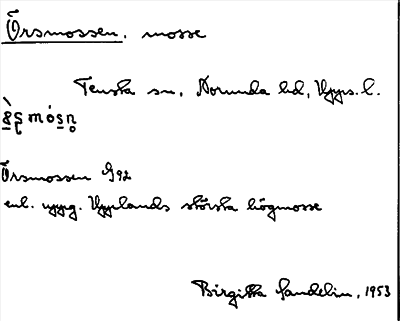 Örsmossen. mosse
Tensta sn, Norunda hd, Upps. l.
Örsmossen G92
enl. uppg. Upplands största högmosse
Birgitta Sandelin, 1953